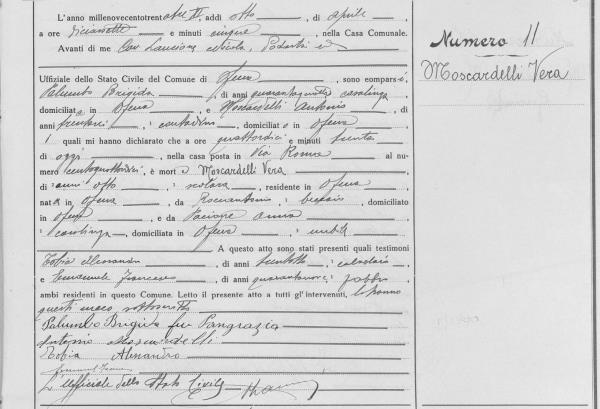 L'anno millenovecentotrent , addì otto , di aprile ,
a ore diciassette e minuti cinque , nella Casa Comunale.
Avanti di me Cav. Nicola, Podestà
Uffiziale dello Stato Civile del Comune di Ofena , sono comparsi,
Palumbo Brigida , di anni casalinga ,
domiciliata in Ofena e Moscardelli Antonio , di
anni , contadino , domiciliato in Ofena
i quali mi hanno dichiarato che a ore quattordici e minuti trenta
di oggi , nella casa posta in Via Roma al nu-
mero , è morta Moscardelli Vera
di anni otto , scolara , residente in Ofena ,
nata in Ofena , da , , domiciliato
in Ofena , e da Anna ,
casalinga , domiciliata in Ofena , nubile
A questo atto sono stati presenti quali testimoni
Tobia Alessandro , di anni , calzolaio ,
e Emanuele Francesco , di anni , fabbro ,
ambi residenti in questo Comune. Letto il presente atto a tutti gl'intervenuti, l'hanno
questi meco sottoscritto
Palumbo Brigida fu Pangrazio
Antonio Moscardelli
Tobia Alesandro
L'Ufficiale dello Stato Civile
Numero 11
Moscardelli Vera